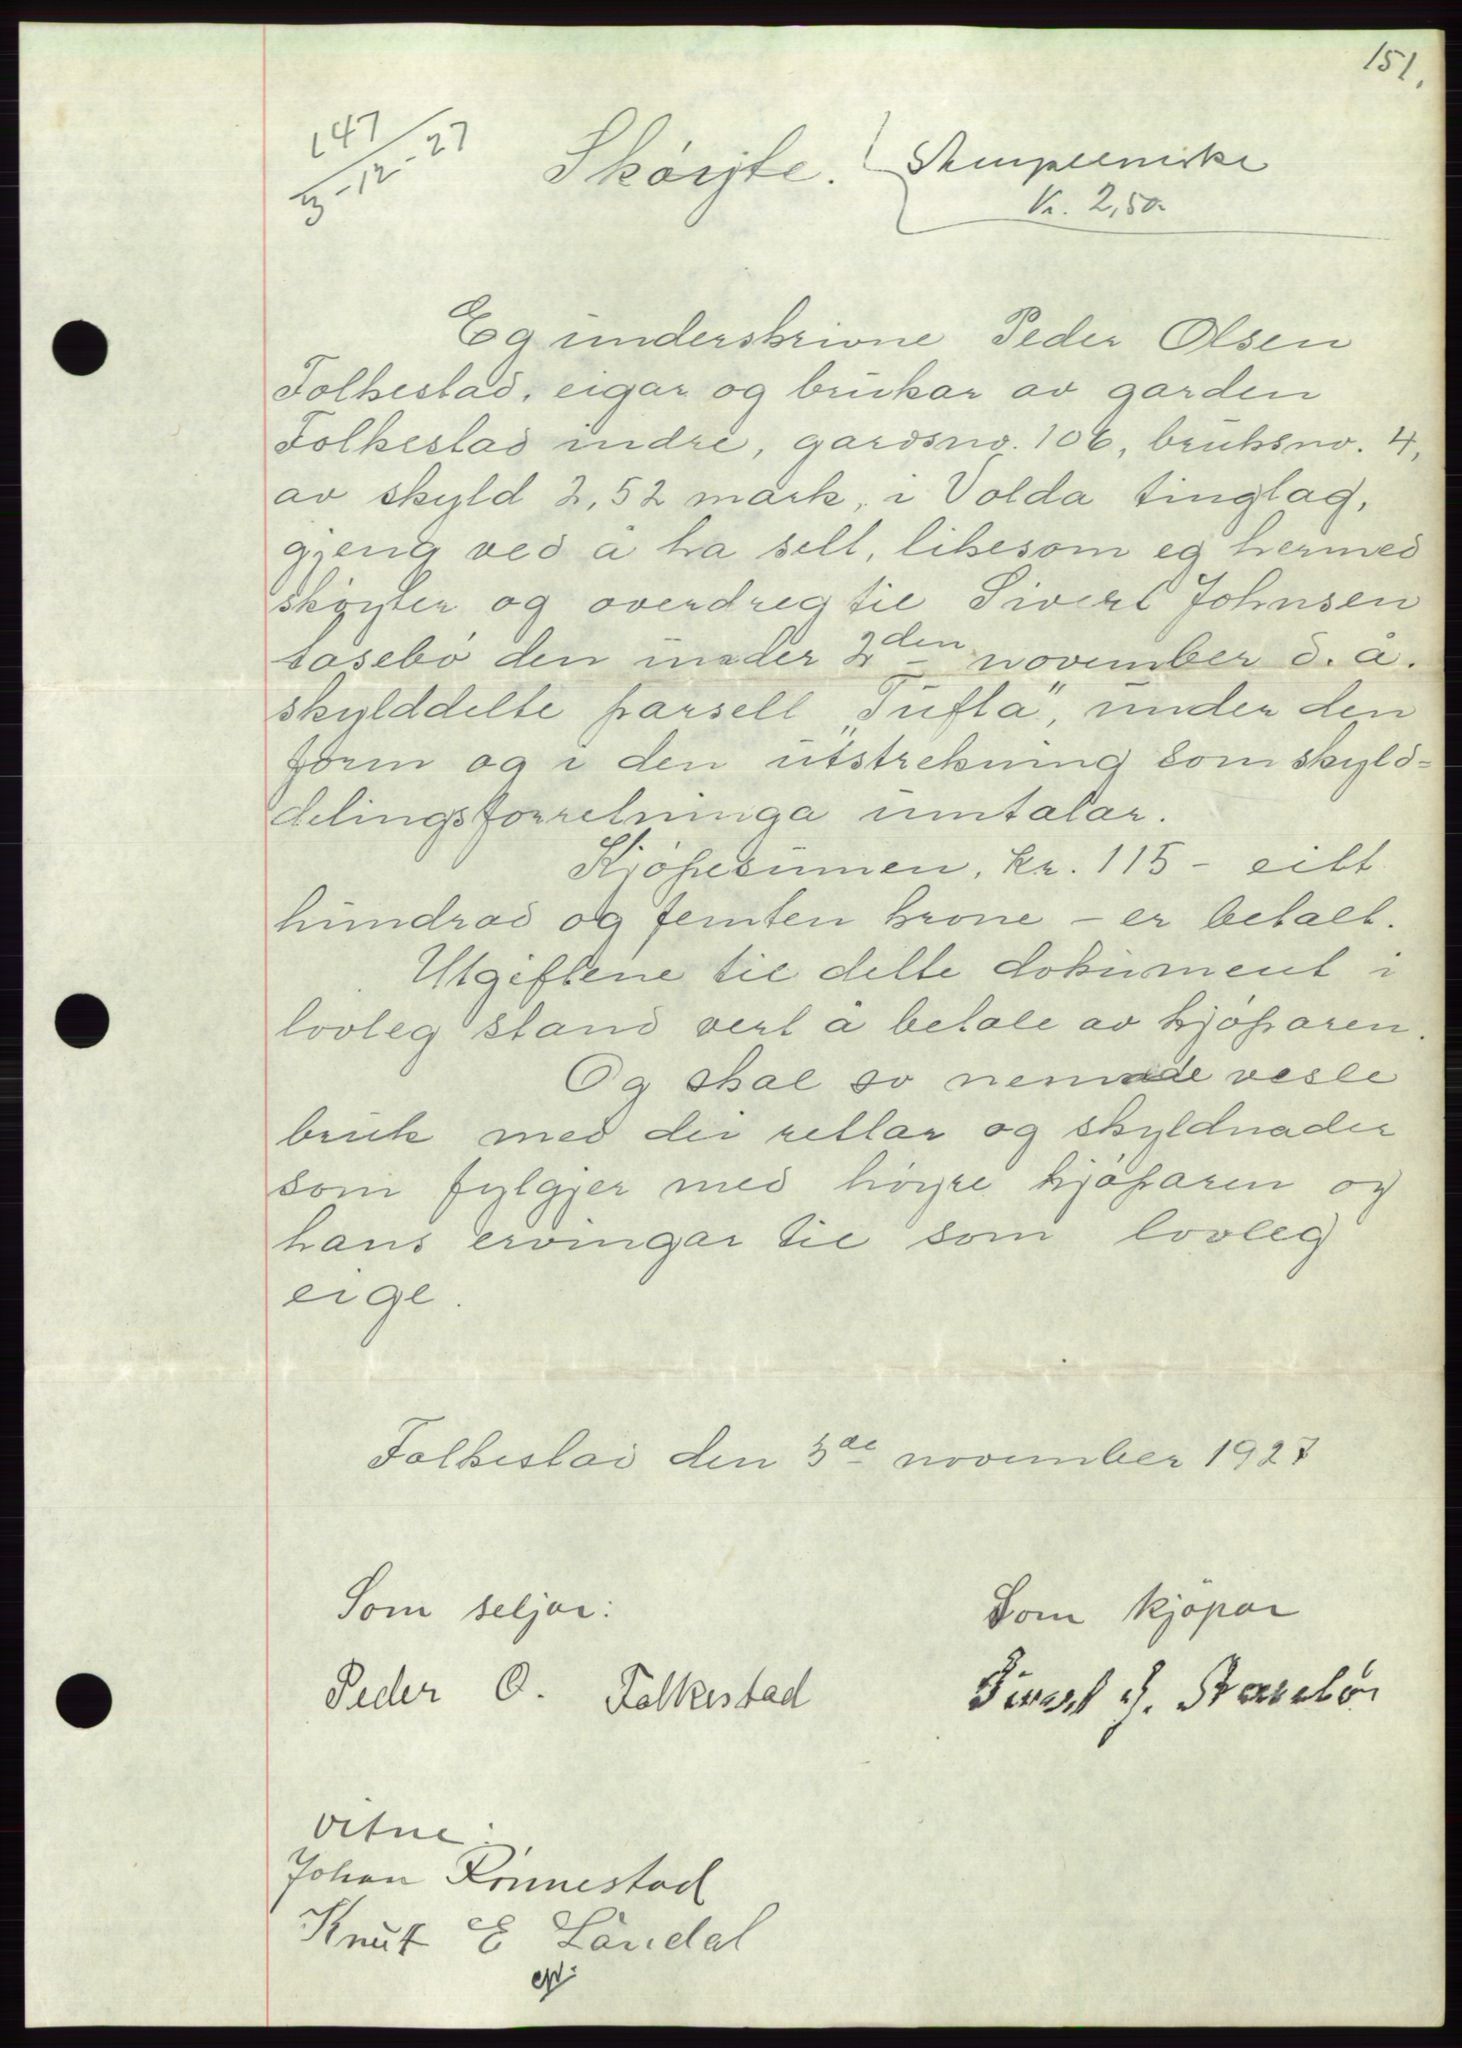 151.
147
3-12-27
Skøyte.
Stempelmerke
Kr. 2,50
Eg underskrivne Peder Olsen
Folkestad, eigar og brukar av garden
Folkestad indre, gardsno. 106, bruksno. 4,
av skyld 2,52 mark, i Volda tinglag,
gjeng ved å ha selt, likesom eg hermed
skøyter og overdreg til Sivert Johnsen
Låsebö den under 2den november d. å.
skylddelte parsell „Tufta", under den
form og i den utstrekning som skyld=
delingsforretninga umtalar.
Kjöpesumen, kr. 115 - eitt
hundrad og femten krone - er betalt.
Utgiftene til dette dokument i
lovleg stand vert å betale av kjöparen.
Og skal so nemnde vesle
bruk med dei rettar og skyldnader
som fylgjer med höyre kjöparen og
hans ervingar til som lovleg
eige.
Folkestad den 3de november 1927
Som seljar:
Som kjöpar
Peder O. Folkestad
Sivert J.
vitne:
Johan Rönnestad
Knut E